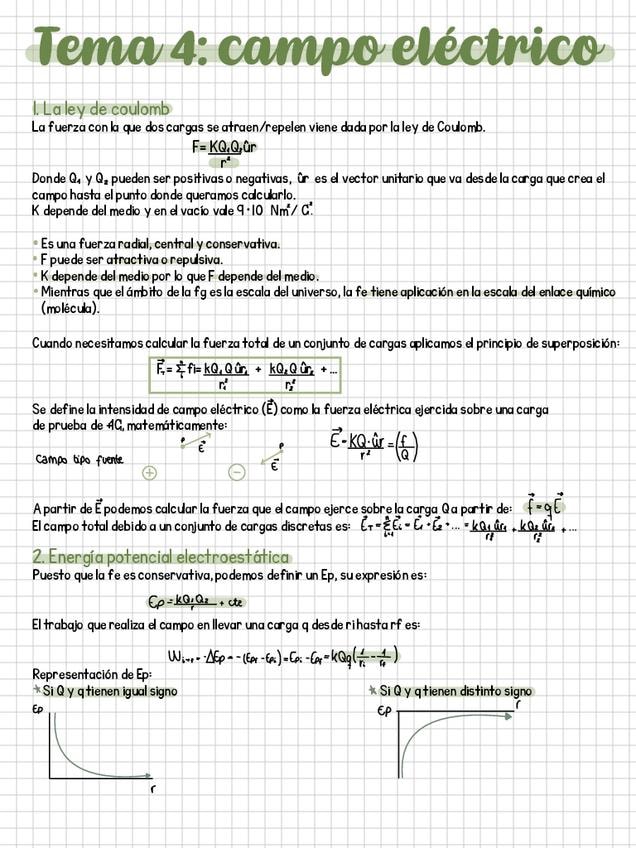 Tema 4: campo eléctrico
1. La ley de coulomb
La fuerza con la que dos cargas se atraen/repelen viene dada por la ley de Coulomb.
F= KQ₁Q₂ûr / r²
Donde Q₁ y Q₂ pueden ser positivas o negativas, ûr es el vector unitario que va desde la carga que crea el
campo hasta el punto donde queramos calcularlo.
K depende del medio y en el vacío vale 9·10 Nm²/ C².
• Es una fuerza radial, central y conservativa.
• F puede ser atractiva o repulsiva.
• K depende del medio por lo que F depende del medio.
• Mientras que el ámbito de la fg es la escala del universo, la fe tiene aplicación en la escala del enlace químico
(molécula).
Cuando necesitamos calcular la fuerza total de un conjunto de cargas aplicamos el principio de superposición:
F⃗ₜ = Σ fi = kQ₁Q ûr₁ / r₁² + kQ₂Q ûr₂ / r₂² + ...
Se define la intensidad de campo eléctrico (E⃗) como la fuerza eléctrica ejercida sobre una carga
de prueba de 1C, matemáticamente:
E⃗ = KQ·ûr / r² = (f / Q)
P
E⃗
P
E⃗
Campo tipo fuente
+
−
A partir de E⃗ podemos calcular la fuerza que el campo ejerce sobre la carga Q a partir de: f⃗ = qE⃗
El campo total debido a un conjunto de cargas discretas es: E⃗ₜ = Σ E⃗ᵢ = E⃗₁ + E⃗₂ + ... = kQ₁ ûr₁ / r₁² + kQ₂ ûr₂ / r₂² + ...
2. Energía potencial electroestática
Puesto que la fe es conservativa, podemos definir un Ep, su expresión es:
Ep = kQ₁Q₂ / r + cte
El trabajo que realiza el campo en llevar una carga q desde ri hasta rf es:
Wᵢ→f = -ΔEp = - (Epf - Epi) = Epi - Epf = kQq(1/ri - 1/rf)
Representación de Ep:
★ Si Q y q tienen igual signo
★ Si Q y q tienen distinto signo
Ep
r
Ep
r